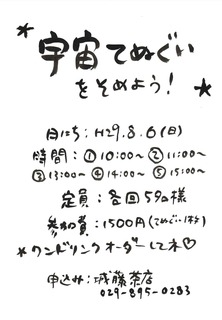 *宇宙てぬぐい
をそめよう! *
日にち:H29.8.6(日)
時間:①10:00~ ②11:00~
③13:00~ ④14:00~ ⑤15:00~
定員:各回5名様
参加費:1500円(てぬぐい1枚)
*ワンドリンクオーダーしてネ♡
申込み:城藤茶店
029-895-0283